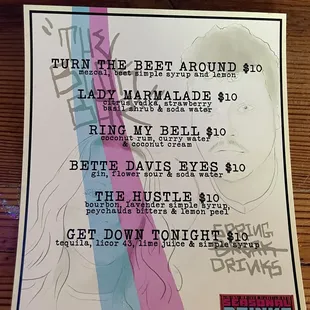 "THE
TURN THE BEET AROUND $10
mezcal, beet simple syrup and lemon
LADY MARMALADE $10
citrus vodka, strawberry
basil shrub & soda water
RING MY BELL $10
coconut rum, curry water
& coconut cream
BETTE DAVIS EYES $10
gin, flower sour & soda water
THE HUSTLE $10
bourbon, lavender simple syrup,
peychauds bitters & lemon peel
GET DOWN TONIGHT $10
tequila, licor 43, lime juice & simple syrup
SPRING
BREAK
DRINKS
SEASONAL